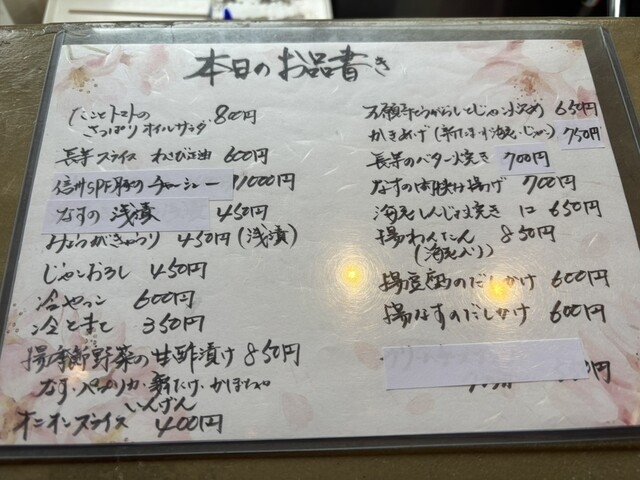 本日のお品書き
たことトマトの
さっぱりオイルサラダ 800円
長芋スライス わさび正油 600円
信州SPF豚のチャーシュー 1000円
なすの浅漬 450円
みょうがきゅうり 450円(浅漬)
じゃこおろし 450円
冷やっこ 600円
冷とまと 350円
揚季節野菜の生酢漬け 850円
なす・パプリカ・舞たけ・かぼちゃ
いんげん
オニオンスライス 400円
万願寺とうがらしとじゃこ炒め 650円
かきあげ(新たま・小海老・じゃこ) 750円
長芋のバター焼き 700円
なすの肉挟み揚げ 700円
海老しんじょ焼き 1コ 650円
揚わんたん 850円
(海老入り)
揚豆腐のだしかけ 600円
揚なすのだしかけ 600円
円